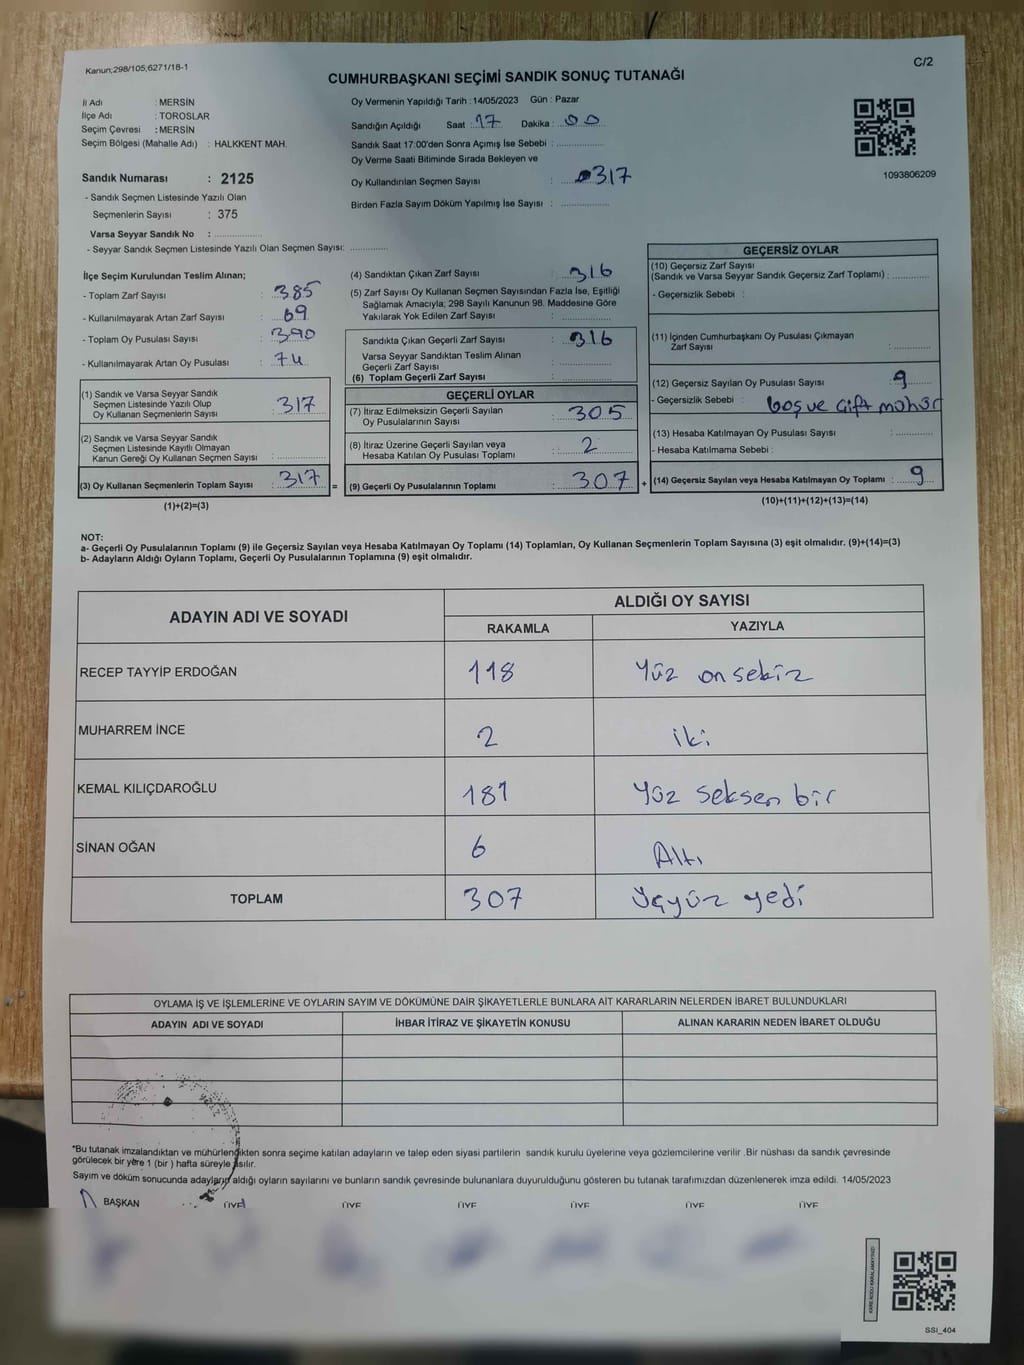 Kanun;298/105,6271/18-1
C/2
CUMHURBAŞKANI SEÇİMİ SANDIK SONUÇ TUTANAĞI
İl Adı : MERSİN
İlçe Adı : TOROSLAR
Seçim Çevresi : MERSİN
Seçim Bölgesi (Mahalle Adı) : HALKKENT MAH.
Sandık Numarası : 2125
- Sandık Seçmen Listesinde Yazılı Olan
Seçmenlerin Sayısı : 375
Varsa Seyyar Sandık No : ................
- Seyyar Sandık Seçmen Listesinde Yazılı Olan Seçmen Sayısı: .............
Oy Vermenin Yapıldığı Tarih : 14/05/2023 Gün : Pazar
Sandığın Açıldığı Saat 17 Dakika : 00
Sandık Saat 17:00'den Sonra Açımış İse Sebebi : ................
Oy Verme Saati Bitiminde Sırada Bekleyen ve
Oy Kullandırılan Seçmen Sayısı : 317
Birden Fazla Sayım Döküm Yapılmış İse Sayısı : ................
1093806209
İlçe Seçim Kurulundan Teslim Alınan;
- Toplam Zarf Sayısı : 385
- Kullanılmayarak Artan Zarf Sayısı : 69
- Toplam Oy Pusulası Sayısı : 390
- Kullanılmayarak Artan Oy Pusulası : 74
(1) Sandık ve Varsa Seyyar Sandık
Seçmen Listesinde Yazılı Olup
Oy Kullanan Seçmenlerin Sayısı : 317
(2) Sandık ve Varsa Seyyar Sandık
Seçmen Listesinde Kayıtlı Olmayan
Kanun Gereği Oy Kullanan Seçmen Sayısı : ................
(3) Oy Kullanan Seçmenlerin Toplam Sayısı : 317 =
(1)+(2)=(3)
(4) Sandıktan Çıkan Zarf Sayısı : 316
(5) Zarf Sayısı Oy Kullanan Seçmen Sayısından Fazla İse, Eşitliği
Sağlamak Amacıyla; 298 Sayılı Kanunun 98. Maddesine Göre
Yakılarak Yok Edilen Zarf Sayısı : ................
Sandıkta Çıkan Geçerli Zarf Sayısı : 316
Varsa Seyyar Sandıktan Teslim Alınan
Geçerli Zarf Sayısı : ................
(6) Toplam Geçerli Zarf Sayısı : ................
GEÇERLİ OYLAR
(7) İtiraz Edilmeksizin Geçerli Sayılan
Oy Pusulalarının Sayısı : 305
(8) İtiraz Üzerine Geçerli Sayılan veya
Hesaba Katılan Oy Pusulası Toplamı : 2
(9) Geçerli Oy Pusulalarının Toplamı : 307 +
GEÇERSİZ OYLAR
(10) Geçersiz Zarf Sayısı
(Sandık ve Varsa Seyyar Sandık Geçersiz Zarf Toplamı) : .............
- Geçersizlik Sebebi :
(11) İçinden Cumhurbaşkanı Oy Pusulası Çıkmayan
Zarf Sayısı : .............
(12) Geçersiz Sayılan Oy Pusulası Sayısı : 9
- Geçersizlik Sebebi : boş ve çift mühür
(13) Hesaba Katılmayan Oy Pusulası Sayısı : .............
- Hesaba Katılmama Sebebi :
(14) Geçersiz Sayılan veya Hesaba Katılmayan Oy Toplamı : 9
(10)+(11)+(12)+(13)=(14)
NOT:
a- Geçerli Oy Pusulalarının Toplamı (9) ile Geçersiz Sayılan veya Hesaba Katılmayan Oy Toplamı (14) Toplamları, Oy Kullanan Seçmenlerin Toplam Sayısına (3) eşit olmalıdır. (9)+(14)=(3)
b- Adayların Aldığı Oyların Toplamı, Geçerli Oy Pusulalarının Toplamına (9) eşit olmalıdır.
ADAYIN ADI VE SOYADI ALDIĞI OY SAYISI
RAKAMLA YAZIYLA
RECEP TAYYİP ERDOĞAN 118 Yüz on sekiz
MUHARREM İNCE 2 iki
KEMAL KILIÇDAROĞLU 181 Yüz seksen bir
SİNAN OĞAN 6 Altı
TOPLAM 307 Üçyüz yedi
OYLAMA İŞ VE İŞLEMLERİNE VE OYLARIN SAYIM VE DÖKÜMÜNE DAİR ŞİKAYETLERLE BUNLARA AİT KARARLARIN NELERDEN İBARET BULUNDUKLARI
ADAYIN ADI VE SOYADI İHBAR İTİRAZ VE ŞİKAYETİN KONUSU ALINAN KARARIN NEDEN İBARET OLDUĞU
*Bu tutanak imzalandıktan ve mühürlendikten sonra seçime katılan adayların ve talep eden siyasi partilerin sandık kurulu üyelerine veya gözlemcilerine verilir .Bir nüshası da sandık çevresinde
görülecek bir yere 1 (bir ) hafta süreyle asılır.
Sayım ve döküm sonucunda adayların aldığı oyların sayılarını ve bunların sandık çevresinde bulunanlara duyurulduğunu gösteren bu tutanak tarafımızdan düzenlenerek imza edildi. 14/05/2023
BAŞKAN ÜYE ÜYE ÜYE ÜYE ÜYE ÜYE
SSI_404